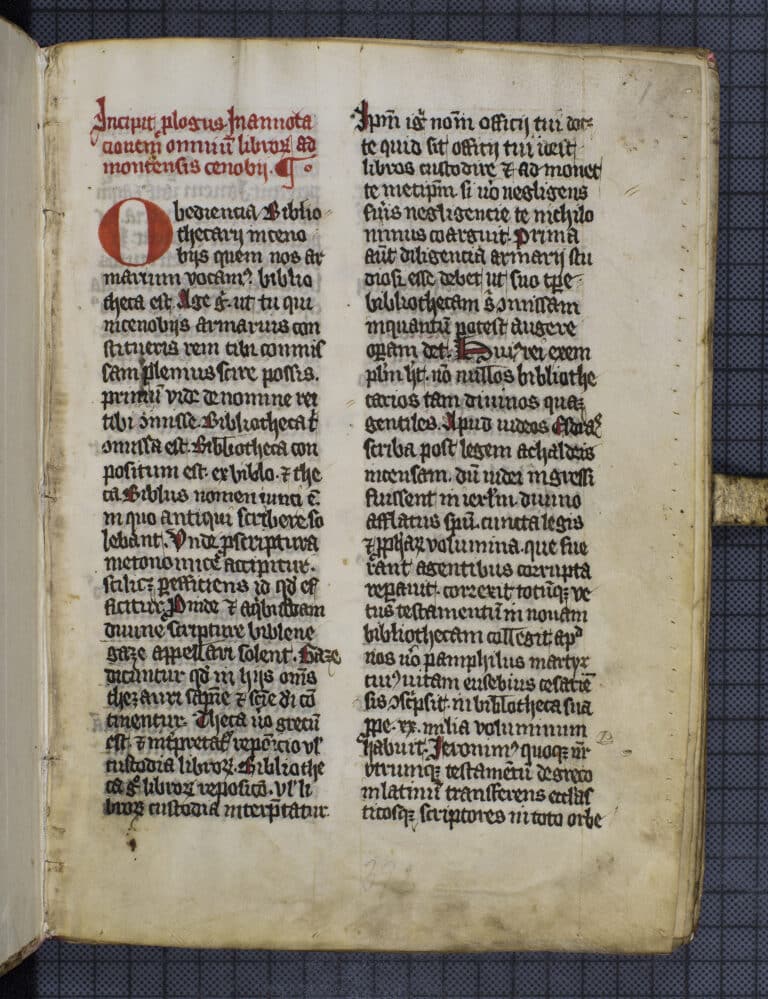 Incipit ꝓlogus In annota
cionem om̅iu̅ libroꝝ ad
montensis cenobij. ¶
Obediencia Biblio
thecarij in ceno
bijs quem nos ar
marium vocamꝰ biblio
theca est Age g̊. ut tu qui
in cenobijs armarius con
stitueris rem tibi commis
sam plenius scire possis.
primu̅ vide de nomine rei
tibi ꝯmisse. Bibliotheca t̅
ꝯmissa est. Bibliotheca con
positum est. ex biblo. ⁊ the
ca Biblus nomen iunci e̅
in quo antiqui scribere so
lebant. Vnde ꝓ scriptura
metonomice̅ accipitur.
scilicꝫ ꝑ efficiens id qd̅ ef
ficitur. Pinde ⁊ a q̇busdam
diuine scripture bibliene
gaze appellari solent. Gaze
dicuntur qd̅ in hijs om̅s
thezauri sapie̅ ⁊ scie̅ di̅ co̅
tinentur. Theca u̅o grecu̅
est. ⁊ int̅pretat᷒ reposicio vl̛
custodia libroꝝ. Bibliothe
ca g̊ libroꝝ reposico̅. vl̛ li
broꝝ custodia interp̅tatur
Ipm̅ ig̅ nom̅ officij tui doc
te quid sit officij tui id est
libros custodire ⁊ ad monet
te metipm̅ si u̅o negligens
fu̅is negligencie te nichilo
minus coarguit. Prima
aut̅ diligencia armarij stu
diosi esse debet ut suo tp̅e
bibliothecam s̅ ꝯmissam
inquantu̅ potest augere
oꝑam det. Huiꝰ rei exem
plu̅ hꝫ. no̅ nullos bibliothe
carios tam diuinos quaꝫ
gentiles. Apud iudeos Esdras
scriba post legem a chaldeis
incensam. du̅ iudei ingressi
fuissent in ierl̅m. diuino
afflatus spu̅. cuncta legis
⁊ ꝓphaꝝ volumina. que fue
rant a gentibus corrupta
reparuit. correxit totu̅qꝫ ve
tus testamentu̅ in nouam
bibliothecam collegit apᵈ
nos u̅o pamphilus martyr
cuiꝰ uitam eusebius cesarie̅
sis ꝯsc̅psit. in bibliotheca sua
ꝓpe. xx. milia voluminum
habuit. Jeronimꝰ quoqꝫ nr̅
vtrumqꝫ testamentu̅ de greco
in latinu̅ transferens eccl̅as
ticosqꝫ scriptores in toto orbe